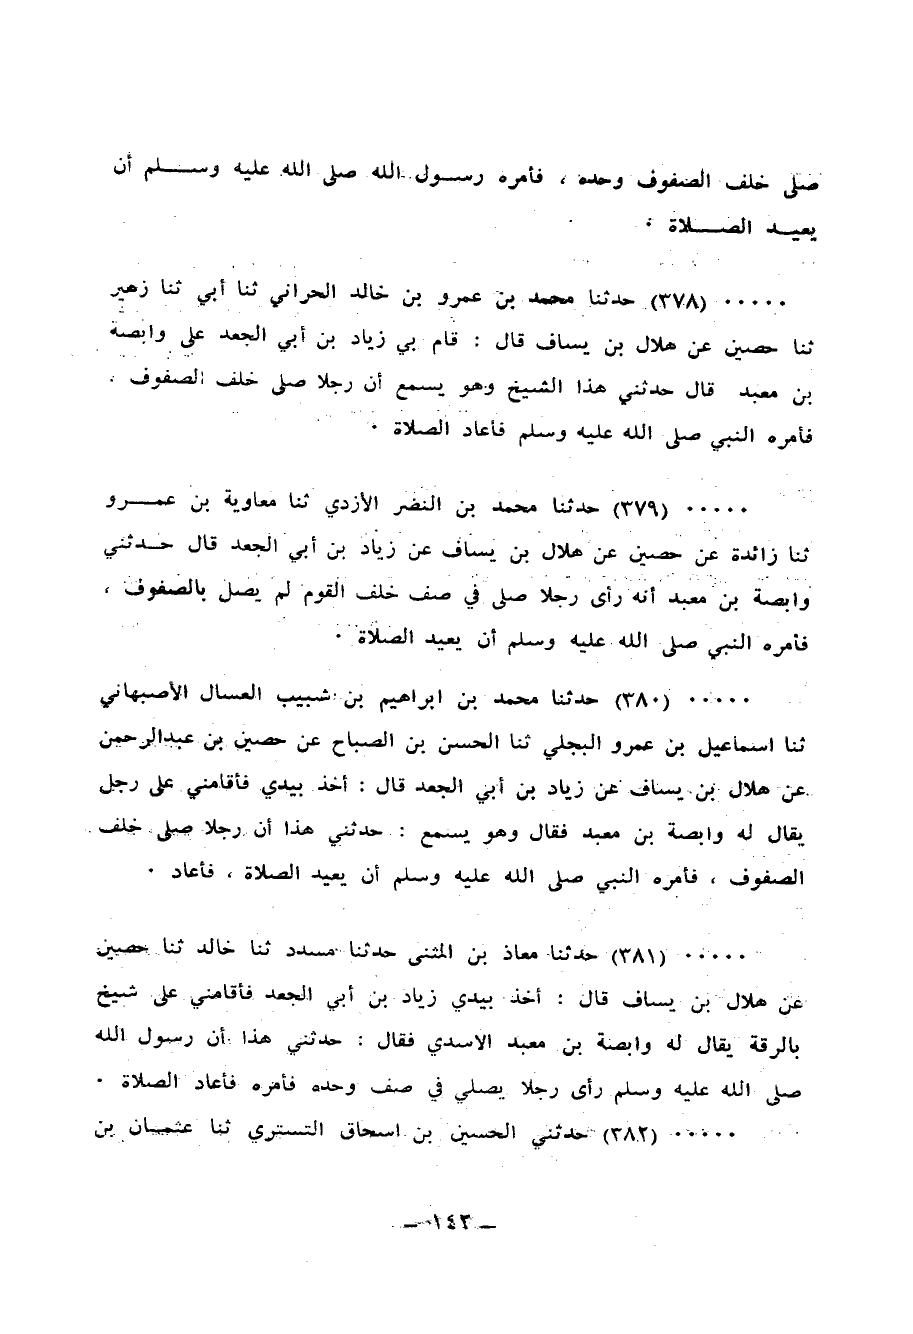 صلى خلف الصفوف وحده ، فأمره رسول الله صلى الله عليه وسلم أن
يعيد الصلاة ٠
٠٠٠٠٠ (٣٧٨) حدثنا محمد بن عمرو بن خالد الحراني ثنا أبي ثنا زهير
ثنا حصين عن هلال بن يساف قال : قام بي زياد بن أبي الجعد على وابصة
بن معبد قال حدثني هذا الشيخ وهو يسمع أن رجلا صلى خلف الصفوف ،
فأمره النبي صلى الله عليه وسلم فأعاد الصلاة ٠
٠٠٠٠٠ (٣٧٩) حدثنا محمد بن النضر الأزدي ثنا معاوية بن عمرو
ثنا زائدة عن حصين عن هلال بن يساف عن زياد بن أبي الجعد قال حدثني
وابصة بن معبد أنه رأى رجلا صلى في صف خلف القوم لم يصل بالصفوف ،
فأمره النبي صلى الله عليه وسلم أن يعيد الصلاة ٠
٠٠٠٠٠ (٣٨٠) حدثنا محمد بن ابراهيم بن شبيب العسال الأصبهاني
ثنا اسماعيل بن عمرو البجلي ثنا الحسن بن الصباح عن حصين بن عبدالرحمن
عن هلال بن يساف عن زياد بن أبي الجعد قال : أخذ بيدي فأقامني على رجل
يقال له وابصة بن معبد فقال وهو يسمع : حدثني هذا أن رجلا صلى خلف
الصفوف ، فأمره النبي صلى الله عليه وسلم أن يعيد الصلاة ، فأعاد ٠
٠٠٠٠٠ (٣٨١) حدثنا معاذ بن المثنى حدثنا مسدد ثنا خالد ثنا حصين
عن هلال بن يساف قال : أخذ بيدي زياد بن أبي الجعد فأقامني على شيخ
بالرقة يقال له وابصة بن معبد الاسدي فقال : حدثني هذا أن رسول الله
صلى الله عليه وسلم رأى رجلا يصلي في صف وحده فأمره فأعاد الصلاة ٠
٠٠٠٠٠ (٣٨٢) حدثني الحسين بن اسحاق التستري ثنا عثمان بن
– ١٤٣ –